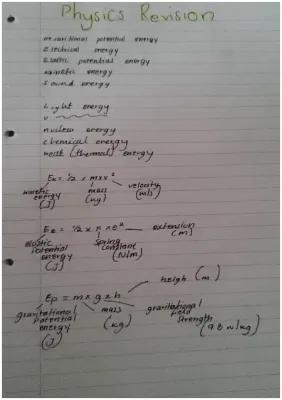 Physics Revision
gravitational potential energy
Electrical energy
Elastic potential energy
kinetic energy
Sound energy
Light energy
nuclear energy
chemical energy
heat (thermal) energy
Ek = 1/2 x m x v²
kinetic energy (J)
mass (kg)
velocity (m/s)
Ee = 1/2 x k x e²
elastic potential energy (J)
Spring constant (N/m)
extension (m)
Ep = m x g x h
gravitational potential energy (J)
mass (kg)
gravitational field strength (9.8 N/kg)
height (m)